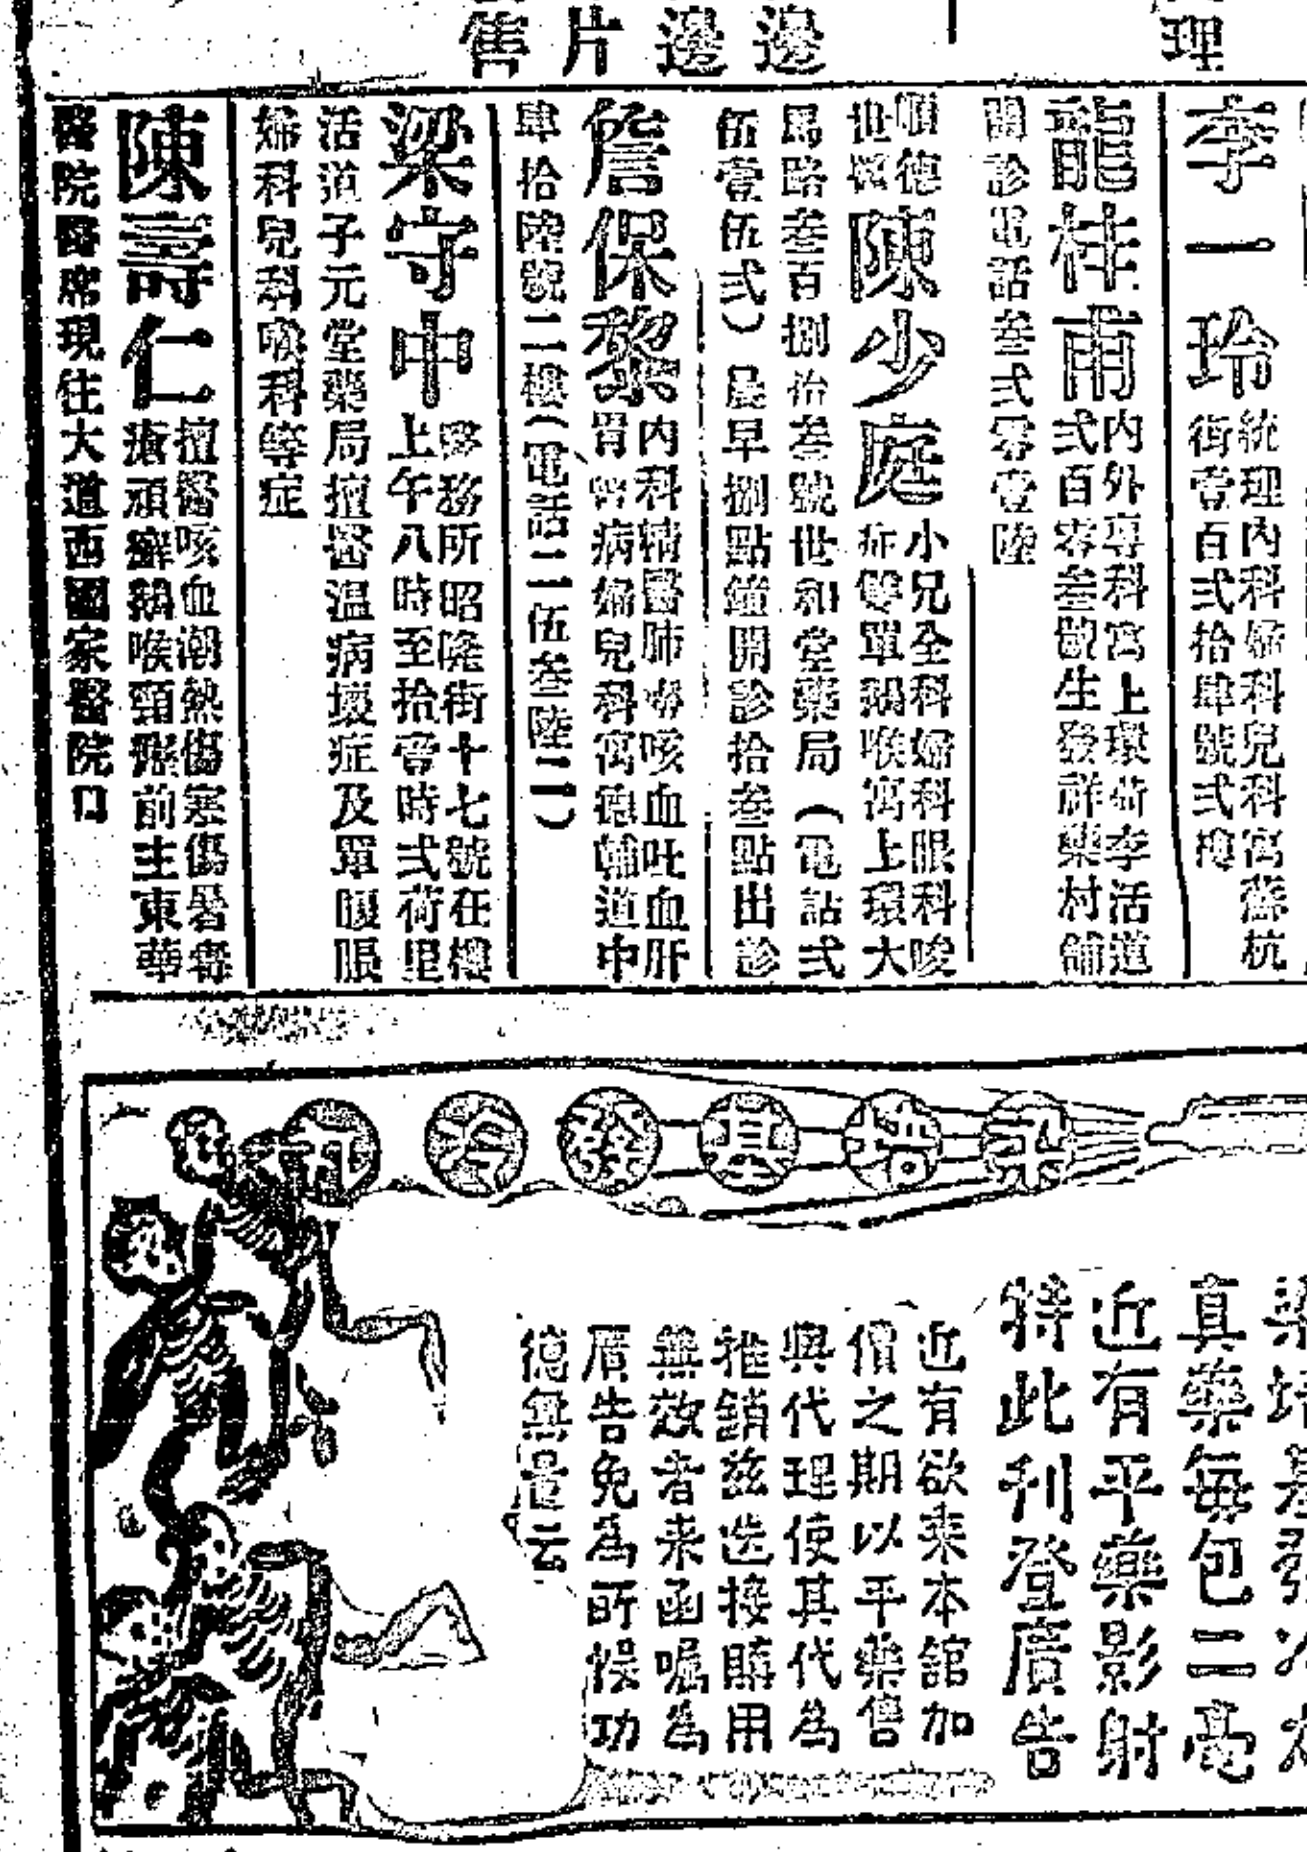 售片邊邊
理
李一玲
統理內科婦科兒科寓蘇杭
街壹百弍拾肆號弍樓
龍桂甫
內外專科寓上環荷李活道
弍百零叁號生發祥藥材舖
開診電話叁弍零壹陸
順德
世醫
陳少庭
小兒全科婦科眼科
症雙單鵝喉寓上環大
馬路叁百捌拾叁號世和堂藥局（電話弍
伍壹伍弍）晨早捌點鐘開診拾叁點出診
詹保黎
內科精醫肺癆咳血吐血肝
胃腎病婦兒科寓德輔道中
肆拾陸號二樓（電話二伍叁陸二）
梁守中
醫務所昭隆街十七號在樓
上午八時至拾壹時弍荷里
活道子元堂藥局擅醫溫病壞症及單腹脹
婦科兒科喉科等症
陳壽仁
擅醫咳血潮熱傷寒傷暑毒
瘡頑癬鵝喉頸癧前主東華
醫院醫席現住大道西國家醫院口
梁培基發冷丸
真藥每包二毫
近有平藥影射
特此刊登廣告
近有欲來本舘加
價之期以平藥售
與代理使其代為
推銷茲迭接購用
無效者來函囑為
廣告免為所悞功
德無量云